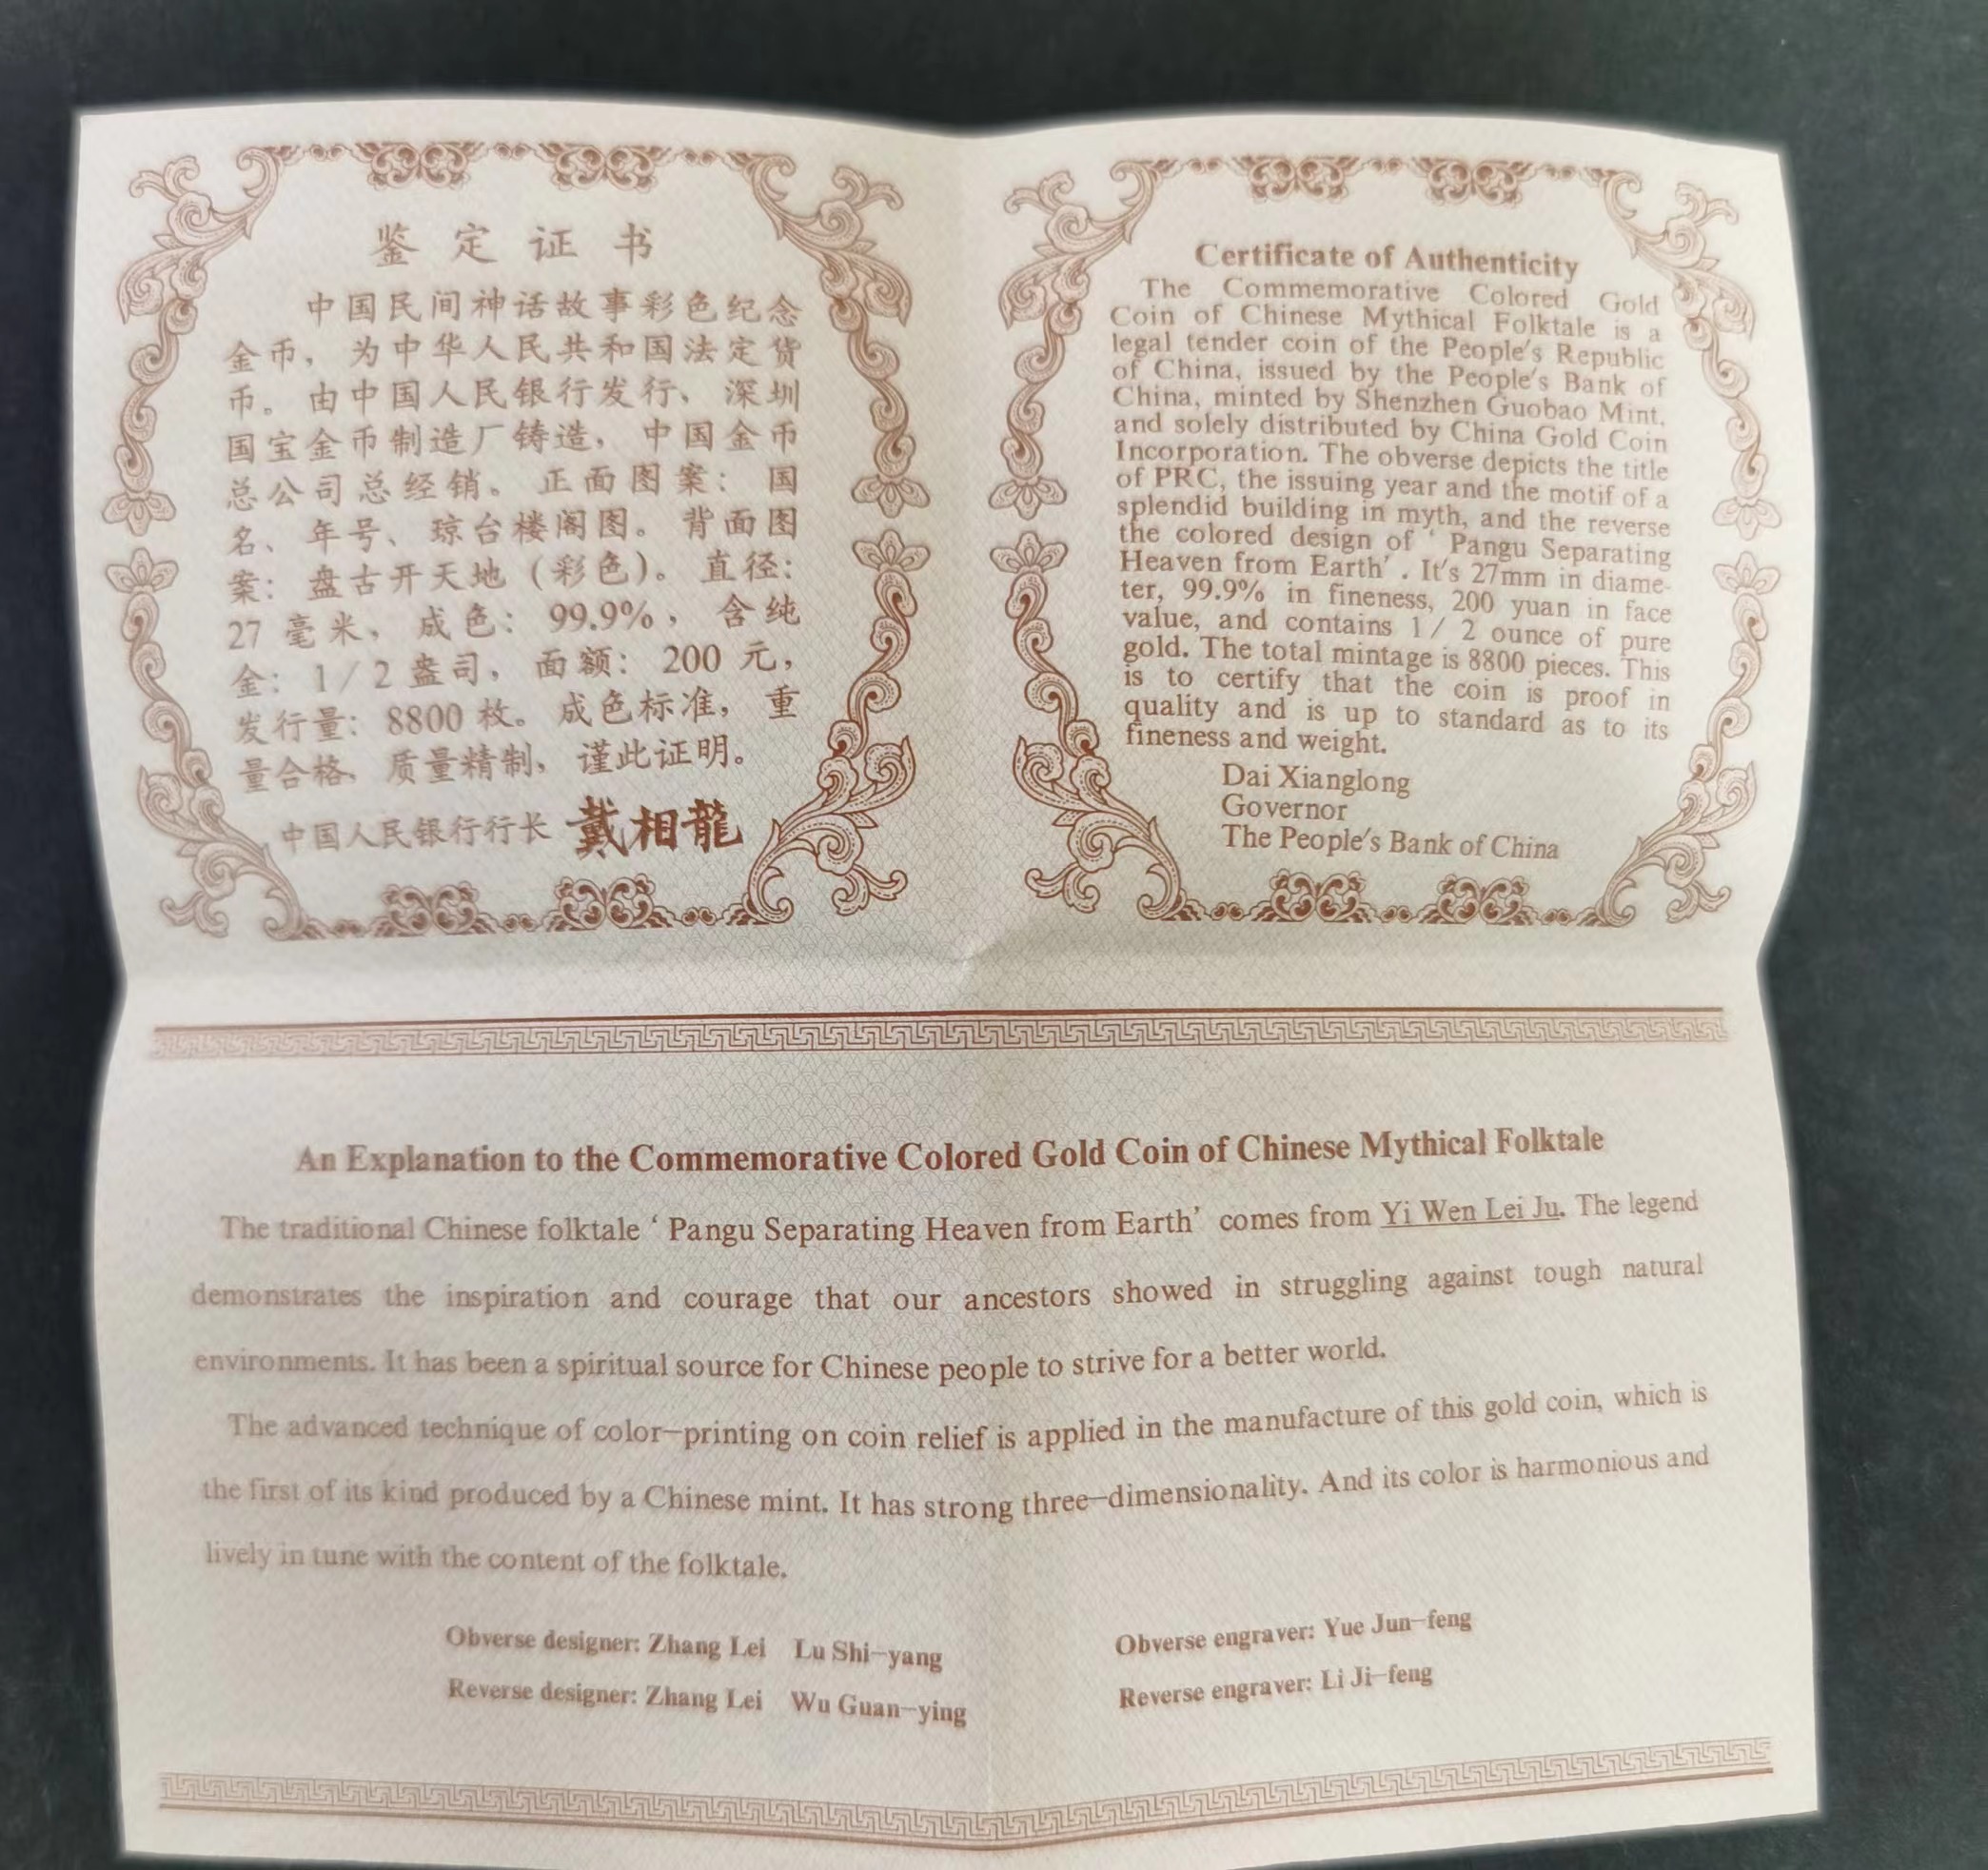 鉴定证书
中国民间神话故事彩色纪念
金币，为中华人民共和国法定货
币。由中国人民银行发行、深圳
国宝金币制造厂铸造，中国金币
总公司总经销。正面图案：国
名、年号、琼台楼阁图。背面图
案：盘古开天地（彩色）。直径：
27毫米，成色：99.9%，含纯
金：1/2盎司，面额：200元，
发行量：8800枚。成色标准，重
量合格，质量精制，谨此证明。
中国人民银行行长 戴相龍
Certificate of Authenticity
The Commemorative Colored Gold
Coin of Chinese Mythical Folktale is a
legal tender coin of the People's Republic
of China, issued by the People's Bank of
China, minted by Shenzhen Guobao Mint,
and solely distributed by China Gold Coin
Incorporation. The obverse depicts the title
of PRC, the issuing year and the motif of a
splendid building in myth, and the reverse
the colored design of ‘ Pangu Separating
Heaven from Earth’ . It's 27mm in diame-
ter, 99.9% in fineness, 200 yuan in face
value, and contains 1/ 2 ounce of pure
gold. The total mintage is 8800 pieces. This
is to certify that the coin is proof in
quality and is up to standard as to its
fineness and weight.
Dai Xianglong
Governor
The People's Bank of China
An Explanation to the Commemorative Colored Gold Coin of Chinese Mythical Folktale
The traditional Chinese folktale ‘ Pangu Separating Heaven from Earth’ comes from Yi Wen Lei Ju. The legend
demonstrates the inspiration and courage that our ancestors showed in struggling against tough natural
environments. It has been a spiritual source for Chinese people to strive for a better world.
The advanced technique of color-printing on coin relief is applied in the manufacture of this gold coin, which is
the first of its kind produced by a Chinese mint. It has strong three-dimensionality. And its color is harmonious and
lively in tune with the content of the folktale.
Obverse designer: Zhang Lei Lu Shi-yang
Obverse engraver: Yue Jun-feng
Reverse designer: Zhang Lei Wu Guan-ying
Reverse engraver: Li Ji-feng